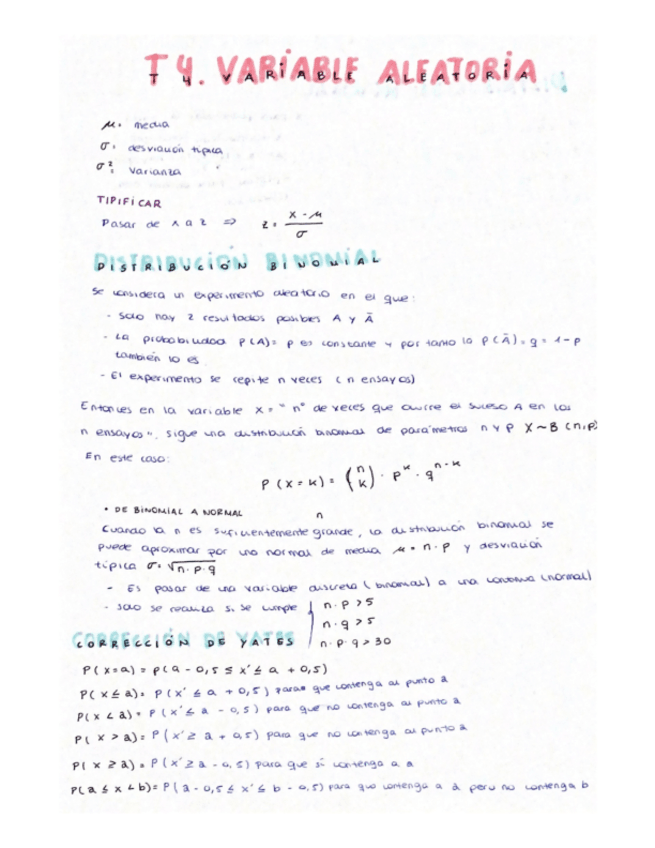 T 4. VARIABLE ALEATORIA
μ: media
σ: desviación típica
σ²: varianza
TIPIFICAR
Pasar de x a z ⇒ z = (x - μ) / σ
DISTRIBUCIÓN BINOMIAL
Se considera un experimento aleatorio en el que:
- Solo hay 2 resultados posibles A y Ā
- La probabilidad P(A) = p es constante y por tanto la P(Ā) = q = 1 - p
también lo es
- El experimento se repite n veces (n ensayos)
Entonces en la variable X = "nº de veces que ocurre el suceso A en los
n ensayos". Sigue una distribución binomial de parámetros n y p X ~ B (n,p)
En este caso:
P (x = k) = (n k) · p^k · q^(n-k)
• DE BINOMIAL A NORMAL
n
Cuando la n es suficientemente grande, la distribución binomial se
puede aproximar por una normal de media μ = n · p y desviación
típica σ = √n · p · q
- Es pasar de una variable discreta (binomial) a una continua (normal)
- Solo se realiza si se cumple
n · p > 5
n · q > 5
n · p · q > 30
CORRECCIÓN DE YATES
P(x = a) = P(a - 0,5 ≤ x' ≤ a + 0,5)
P(x ≤ a) = P(x' ≤ a + 0,5) para que contenga al punto a
P(x < a) = P(x' ≤ a - 0,5) para que no contenga al punto a
P(x > a) = P(x' ≥ a + 0,5) para que no contenga al punto a
P(x ≥ a) = P(x' ≥ a - 0,5) para que si contenga a a
P(a ≤ x < b) = P(a - 0,5 ≤ x' ≤ b - 0,5) para que contenga a a pero no contenga b